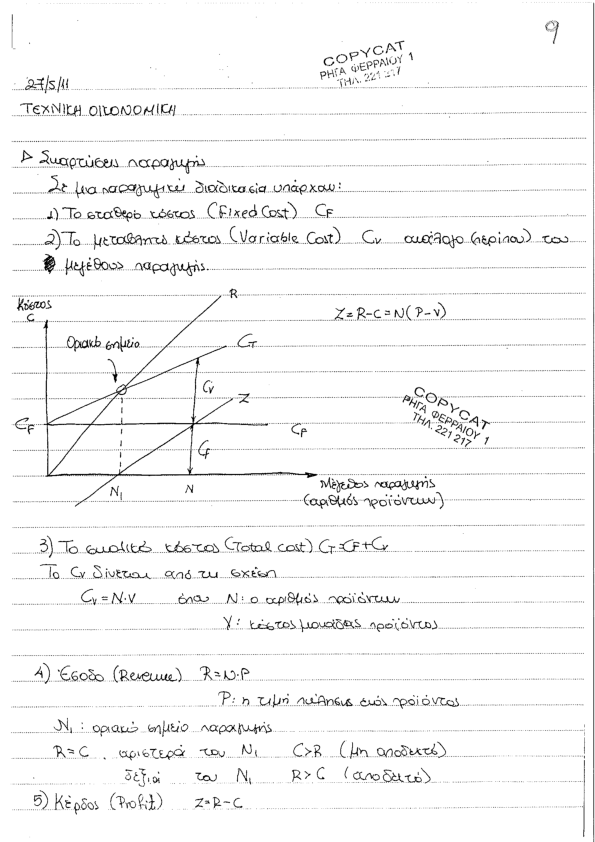 9
COPYCAT
ΡΗΓΑ ΦΕΡΡΑΙΟΥ 1
ΤΗΛ. 221 217
27/5/11
ΤΕΧΝΙΚΗ ΟΙΚΟΝΟΜΙΚΗ
▷ Συναρτήσεις παραγωγής
Σε μια παραγωγική διαδικασία υπάρχουν:
1) Το σταθερό κόστος (Fixed Cost) CF
2) Το μεταβλητό κόστος (Variable Cost) Cv ανάλογο (περίπου) του
μεγέθους παραγωγής.
Κόστος
C
R
Z = R-C = N(P-V)
Οριακό σημείο
CT
Cv
Z
CF
CF
CF
COPYCAT
ΡΗΓΑ ΦΕΡΡΑΙΟΥ 1
ΤΗΛ. 221 217
N1
N
Μέγεθος παραγωγής
(αριθμός προϊόντων)
3) Το συνολικό κόστος (Total cost) CT=CF+Cv
Το Cv δίνεται από τη σχέση
Cv = N·V όπου N: ο αριθμός προϊόντων
V: κόστος μονάδας προϊόντος
4) Έσοδο (Revenue) R=N·P
P: η τιμή πώλησης ενός προϊόντος
N1: οριακό σημείο παραγωγής
R=C. αριστερά του N1 C>R (μη αποδεκτό)
δεξιά του N1 R>C (αποδεκτό)
5) Κέρδος (Profit) Z=R-C